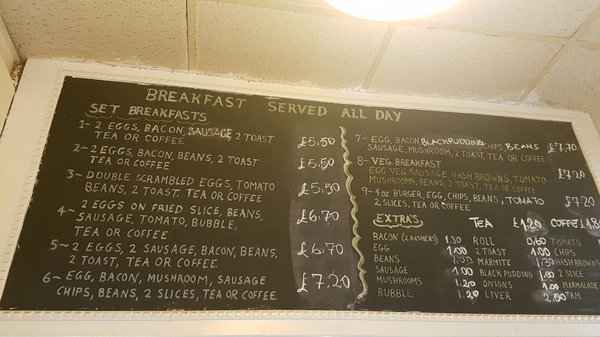 BREAKFAST SERVED ALL DAY
SET BREAKFASTS
1~ 2 EGGS, BACON, SAUSAGE, 2 TOAST £5.50
TEA OR COFFEE
2~ 2 EGGS, BACON, BEANS, 2 TOAST £5.50
TEA OR COFFEE
3~ DOUBLE SCRAMBLED EGGS, TOMATO £5.50
BEANS, 2 TOAST, TEA OR COFFEE
4~ 2 EGGS ON FRIED SLICE, BEANS, £6.70
SAUSAGE, TOMATO, BUBBLE,
TEA OR COFFEE
5~ 2 EGGS, 2 SAUSAGE, BACON, BEANS, £6.70
2 TOAST, TEA OR COFFEE
6~ EGG, BACON, MUSHROOM, SAUSAGE £7.20
CHIPS, BEANS, 2 SLICES, TEA OR COFFEE.
7~ EGG, BACON BLACKPUDDING, CHIPS, BEANS, £7.70
SAUSAGE, MUSHROOM, 2 TOAST, TEA OR COFFEE
8~ VEG. BREAKFAST £7.20
EGG, VEG SAUSAGE, HASH BROWNS, TOMATO
MUSHROOMS, BEANS, 2 TOAST, TEA OR COFFEE
9~ 4oz BURGER, EGG, CHIPS, BEANS, TOMATO £7.20
2 SLICES, TEA OR COFFEE
EXTRA'S TEA £1.20 COFFEE
BACON (2 RASHERS) 1.30 ROLL 0.60 TOMATO
EGG 1.00 2 TOAST 1.00 CHIPS
BEANS MARMITE 1.30 HASH BROWNS
SAUSAGE 1.00 BLACK PUDDING 1.00 2 SLICE
MUSHROOMS 1.20 ONIONS 1.00 MARMALADE
BUBBLE 1.20 LIVER